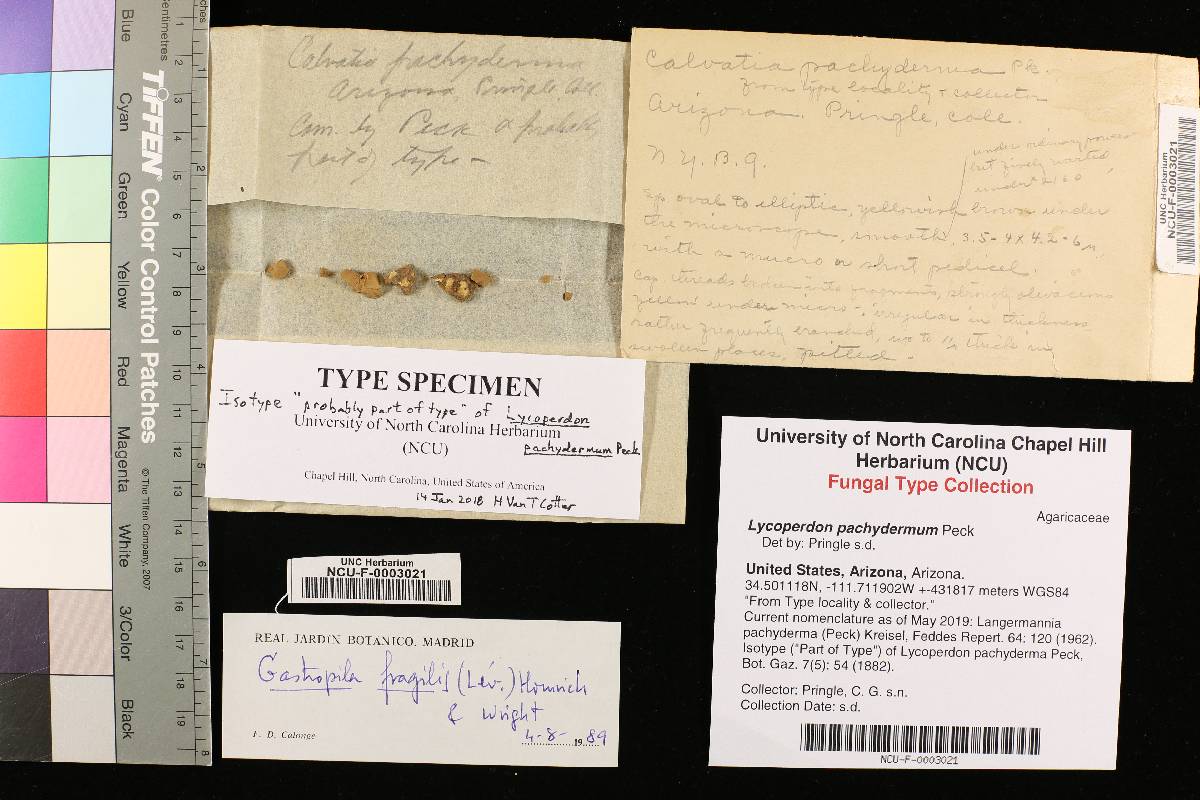 Centimetres
Inches
Blue
Cyan
Green
Yellow
Red
Magenta
White
3/Color
Black
TIFFEN Color Control Patches
© The Tiffen Company, 2007
1 2 3 4 5 6 7 8 9 10 11 12 13 14 15 16 17 18 19
1 2 3 4 5 6 7 8
Calvatia pachyderma
Arizona, Pringle, Coll.
Com. by Peck & probably
part of type -
Calvatia pachyderma Pk.
From type locality & collector
Arizona. Pringle, cole.
N. Y. B. G.
under ordinary power
but finely warted
under 2160
Sp. oval to elliptic, yellowish brown under
the microscope, smooth, 3.5-4 x 4.2-6 µ,
with a mucro or short pedicel.
Cap. threads broken into fragments, strongly olivaceous
yellow under micro-, irregular in thickness
rather frequently branched, up to thick in
swollen places, pitted -
UNC Herbarium
NCU-F-0003021
TYPE SPECIMEN
Isotype "probably part of type" of Lycoperdon
University of North Carolina Herbarium
pachydermum Peck
(NCU)
Chapel Hill, North Carolina, United States of America
14 Jan 2018 H Van T Cotter
UNC Herbarium
NCU-F-0003021
REAL JARDIN BOTANICO, MADRID
Gastropila fragilis (Lév.) Homrich
& Wright
F. D. Calonge
4-8-1989
University of North Carolina Chapel Hill
Herbarium (NCU)
Fungal Type Collection
Agaricaceae
Lycoperdon pachydermum Peck
Det by: Pringle s.d.
United States, Arizona, Arizona.
34.501118N, -111.711902W +-431817 meters WGS84
"From Type locality & collector."
Current nomenclature as of May 2019: Langermannia
pachyderma (Peck) Kreisel, Feddes Repert. 64: 120 (1962).
Isotype ("Part of Type") of Lycoperdon pachyderma Peck,
Bot. Gaz. 7(5): 54 (1882).
Collector: Pringle, C. G. s.n.
Collection Date: s.d.
NCU-F-0003021